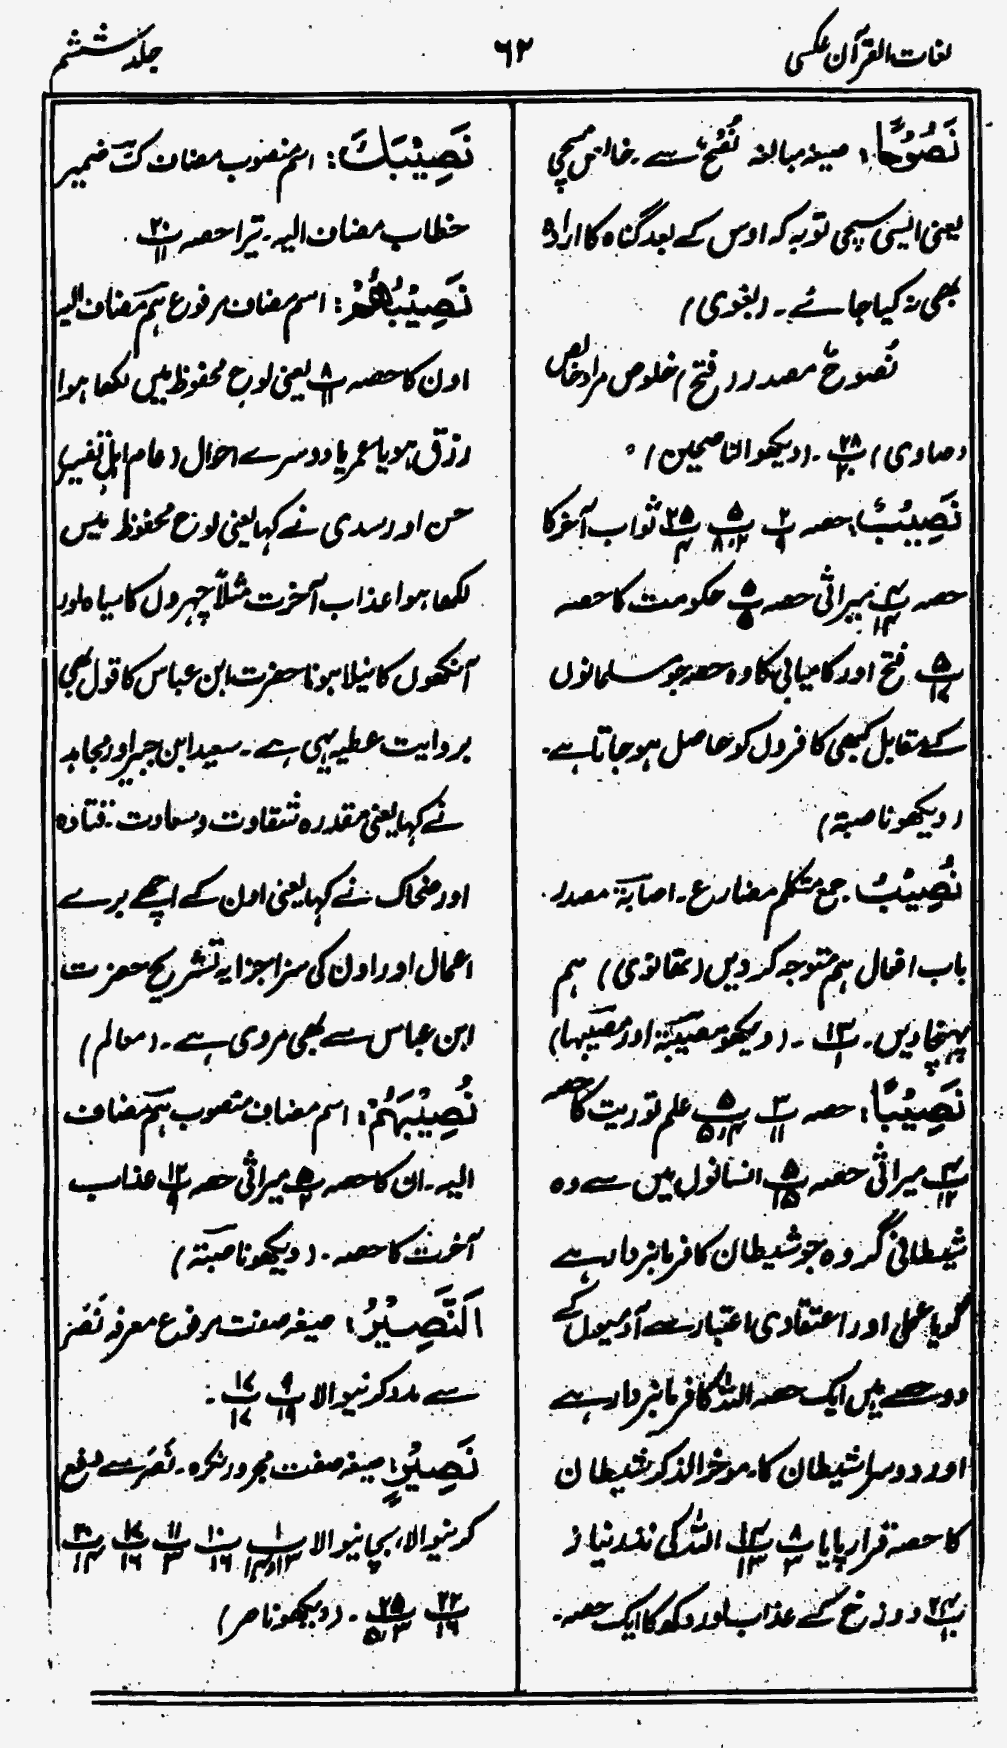 لغات القرآن عکسی
۶۲
جلد ششم
نَصُوْحًا: صیغہ مبالغہ نُصْحٌ سے۔ خالص سچی
یعنی ایسی سچی توبہ کہ اوس کے بعد گناہ کا ارادہ
بھی نہ کیا جائے۔ (بغوی)
نُصوحٌ مصدر (فتح) خلوص مراد خالص
(صاوی) پ ۲۸/۲۰۔ (دیکھو الناصحین)
نَصِیْبٌ: حصہ پ ۲/۹ پ ۵/۸،۲ پ ۲۵/۴ ثواب آخر کا
حصہ پ ۴/۱۴ میراثی حصہ پ ۵/۵ حکومت کا حصہ
پ ۵/۱۷ فتح اور کامیابی کا وہ حصہ جو مسلمانوں
کے مقابل کبھی کافروں کو حاصل ہو جاتا ہے۔
(دیکھو ناصبۃ)
نُصِیْبُ: جمع متکلم مضارع۔ اصابۃ مصدر
باب افعال ہم متوجہ کر دیں (تھانوی) ہم
پہنچا دیں۔ پ ۱۳/۱۔ (دیکھو مصیبۃ اور مصیبہا)
نَصِیْبًا: حصہ پ ۳/۱۱ پ ۵/۵،۴ علم توریت کا حصہ
پ ۴/۱۲ میراثی حصہ پ ۵/۱۵ انسانوں میں سے وہ
شیطانی گروہ جو شیطان کا فرمانبردار ہے
گویا عملی اور اعتقادی اعتبار سے آدمیوں کے
دو حصے ہیں ایک حصہ اللہ کا فرمانبردار ہے
اور دوسرا شیطان کا۔ موخر الذکر شیطان
کا حصہ قرار پایا پ ۸/۳ پ ۱۴/۱۳ اللہ کی نذر نیاز
پ ۲۴/۱۰ دوزخ کے عذاب اور دکھ کا ایک حصہ۔
نَصِیْبَكَ: اسم منصوب مضاف كَ ضمیر
خطاب مضاف الیہ۔ تیرا حصہ پ ۲۰/۱۱۔
نَصِیْبُهُمْ: اسم مضاف مرفوع ہم مضاف الیہ
اون کا حصہ پ ۸/۱۱ یعنی لوح محفوظ میں لکھا ہوا
رزق ہو یا عمر یا دوسرے احوال (عام اہل تفسیر)
حسن اور سدی نے کہا یعنی لوح محفوظ میں
لکھا ہوا عذاب آخرت مثلاً چہروں کا سیاہ اور
آنکھوں کا نیلا ہونا حضرت ابن عباس کا قول بھی
بروایت عطیہ یہی ہے۔ سعید ابن جبیر اور مجاہد
نے کہا یعنی مقدرہ شقاوت و سعادت۔ قتادہ
اور ضحاک نے کہا یعنی اون کے اچھے برے
اعمال اور اون کی سزا جزا یہ تشریح حضرت
ابن عباس سے بھی مروی ہے۔ (معالم)
نُصِیْبَهُمْ: اسم مضاف منصوب ہم مضاف
الیہ۔ ان کا حصہ پ ۵/۲ میراثی حصہ پ ۱۲/۹ عذاب
آخرت کا حصہ۔ (دیکھو ناصبۃ)
اَلنَّصِیْرُ: صیغہ صفت مرفوع معرفہ نَصْر
سے مدد کرنیوالا پ ۹/۱۹ پ ۱۷/۱۷۔
نَصِیْرٍ: صیغہ صفت مجرور نکرہ۔ نَصْر سے دفع
کرنیوالا، بچانیوالا پ ۱/۱۳،۱۴ پ ۱۰/۱۶ پ ۱۱/۳ پ ۱۷/۱۶ پ ۲۰/۱۴
پ ۲۲/۱۶ پ ۲۵/۵،۳۔ (دیکھو ناصر)